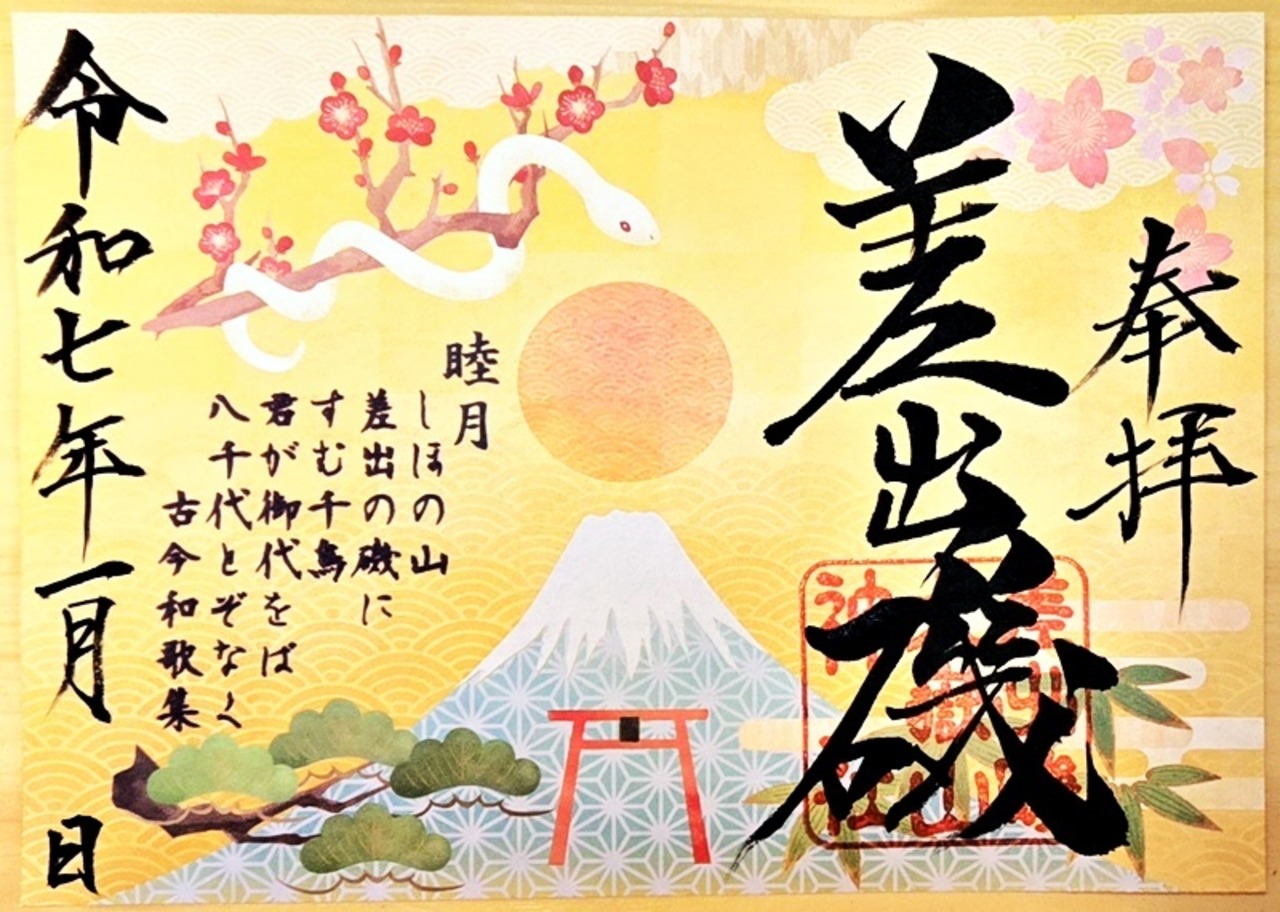 奉拝
差出磯
睦月
しほの山
差出の磯に
すむ千鳥
君が御代をば
八千代とぞなく
古今和歌集
令和七年一月 日